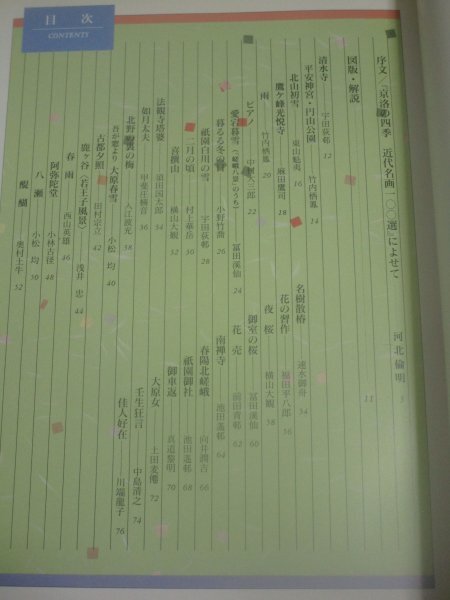 目次
CONTENTS
序文/『京洛の四季 近代名画一〇〇選』によせて 河北倫明 5
図版・解説 11
清水寺 宇田荻邨 12
平安神宮・円山公園 竹内栖鳳 14
北山初雪 東山魁夷 16
鷹ケ峰光悦寺 麻田鷹司 18
雨 竹内栖鳳 20
ピアノ 22
愛宕暮雪(〈嵯峨八景〉のうち) 冨田溪仙 24
暮るる冬の日 小野竹喬 26
祇園白川の雪 宇田荻邨 28
二月の頃 村上華岳 30
喜撰山 横山大観 32
法観寺塔婆 須田国太郎 34
如月太夫 甲斐庄楠音 36
北野の裏の梅 入江波光 38
吾が窓より 大原春雪 小松均 40
古都夕照 田村宗立 42
鹿ヶ谷〈若王子風景〉 浅井忠 44
春雨 西山英雄 46
阿弥陀堂 小林古径 48
八瀬 小松均 50
醍醐 奥村土牛 52
名樹散椿 速水御舟 54
花の習作 福田平八郎 56
夜桜 横山大観 58
御室の桜 冨田溪仙 60
花売 前田青邨 62
南禅寺 池田遙邨 64
春陽北嵯峨 向井潤吉 66
祇園御社 池田遙邨 68
御車返 真道黎明 70
大原女 土田麦僊 72
壬生狂言 中島清之 74
佳人好在 川端龍子 76